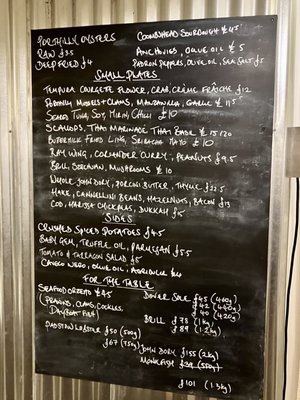 PORTHILLY OYSTERS
RAW £3.5
DEEP FRIED £4
COOMBSHEAD SOURDOUGH £4.5
ANCHOVIES, OLIVE OIL £5
PADRON PEPPERS, OLIVE OIL, SEA SALT £5
SMALL PLATES
TEMPURA COURGETTE FLOWER, CRAB, CRÈME FRAÎCHE £12
MUSSELS + CLAMS, MANZANILLA, GARLIC £11.5
TUNA, SOY, MIRIN, CHILLI £10
SCALLOPS, THAI MARINADE, THAI BASIL £15/20
BUTTERMILK FRIED LING, SRIRACHA MAYO £10
RAY WING, CORIANDER CURRY, PEANUTS £9.5
BRILL, MUSHROOMS £10
WHOLE JOHN DORY, PORCINI BUTTER, THYME £22.5
HAKE, CANNELLINI BEANS, HAZELNUTS, BACON £13
COD, HARISSA CHICKPEAS, DUKKAH £15
SIDES
CRUSHED SPICED POTATOES £4.5
BABY GEM, TRUFFLE OIL, PARMESAN £5.5
TOMATO & TARRAGON SALAD £5
OLIVE OIL
FOR THE TABLE
SEAFOOD £45
(PRAWNS, CLAMS, COCKLES,
DAYBOAT FISH)
PADSTOW LOBSTER £50 (500g)
£67 (750g)
DOVER SOLE £45 (440g)
£42 (440g)
£40 (420g)
BRILL £78 (1kg)
£89 (1.2kg)
JOHN DORY £155 (2kg)
MONKFISH £39 (550g)
£101 (1.3kg)